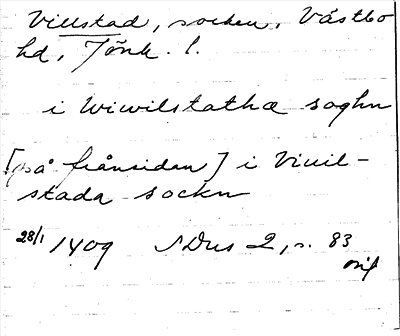 Villstad, socken, Västbo
hd, Jönk. l.
i Wiwilstatha soghn
[på frånsidan] i Viuil-
stada sockn
28/1 1409 SDns 2, s. 83
orig